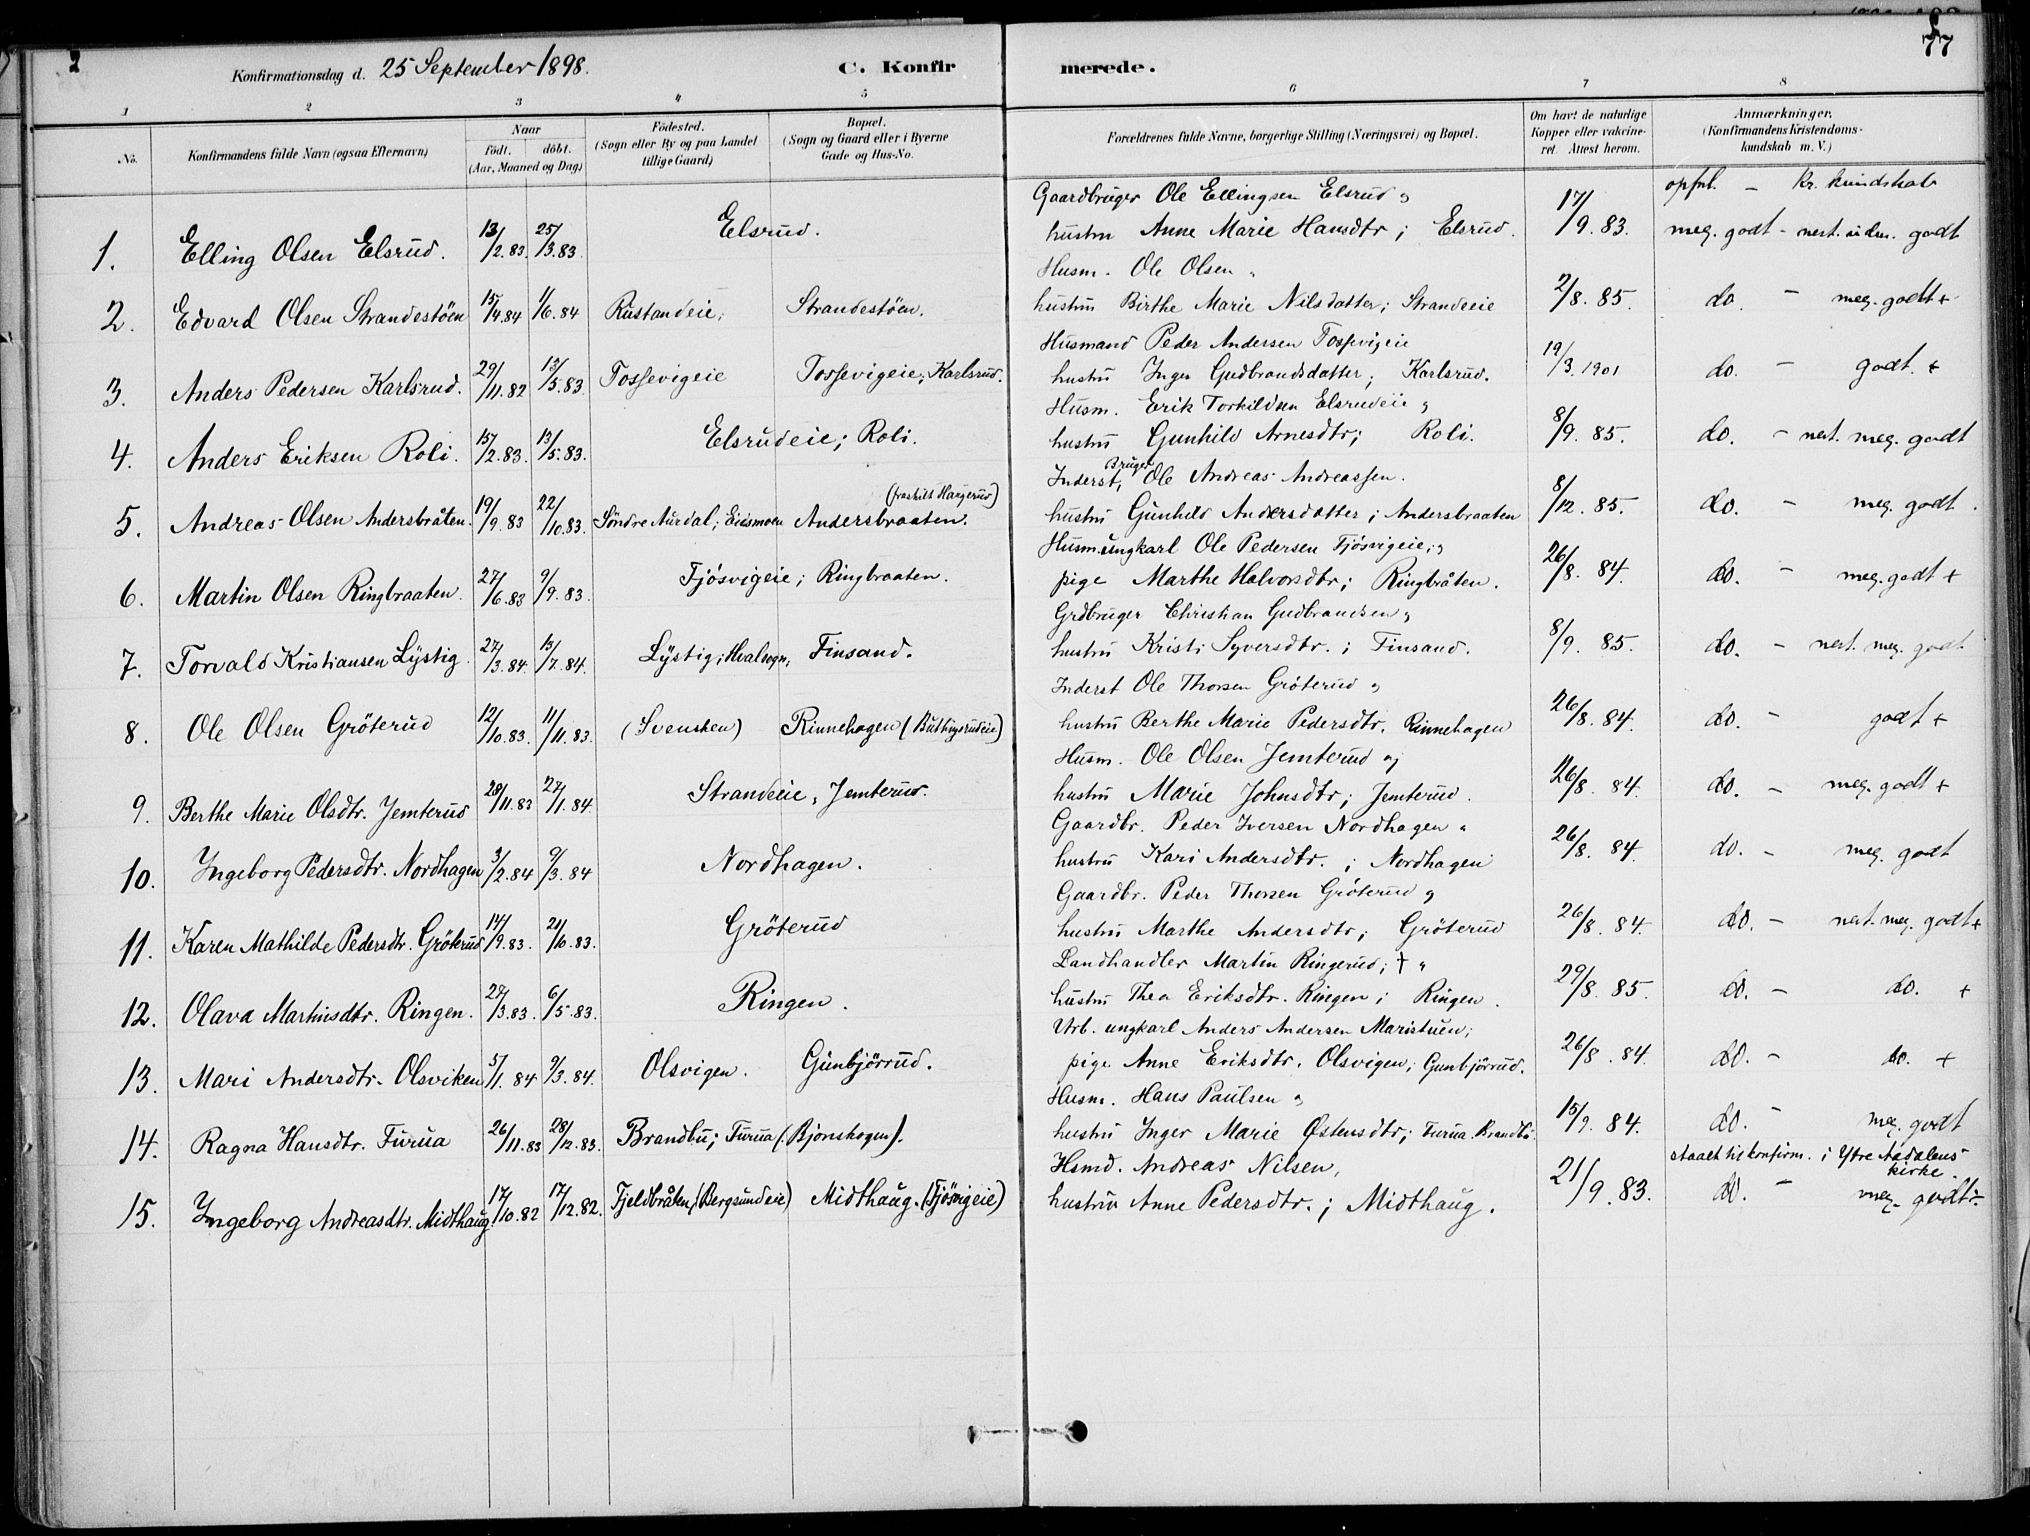 2
77
Konfirmationsdag d. 25 September 1898.
C. Konfirmerede.
1 2 3 4 5 6 7 8
No.
Konfirmandens fulde Navn (ogsaa Efternavn)
Naar
födt. döbt.
(Aar, Maaned og Dag)
Födested.
(Sogn eller By og paa Landet
tillige Gaard)
Bopæl.
(Sogn og Gaard eller i Byerne
Gade og Hus-No.
Forældrenes fulde Navne, borgerlige Stilling (Næringsvei) og Bopæl.
Om havt de naturlige
Kopper eller vakcine-
ret. Attest herom.
Anmærkninger.
(Konfirmandens Kristendoms-
kundskab m. V.)
opf. - kr. kundskab
Gaardbruger Ole Ellingsen Elsrud og
1. Elling Olsen Elsrud. 13/2.83. 25/3.83 Elsrud. hustru Anne Marie Hansdtr; Elsrud. 17/9.83. meg. godt - godt
Husm. Ole Olsen "
2. Edvard Olsen Strandestöen 15/4.84 1/6.84 Rustandeie; Strandestöen. hustru Birthe Marie Nilsdatter; Strandeie 2/8.85. do - meg. godt +
Husmand Peder Andersen Tossevigeie
3. Anders Pedersen Karlsrud. 29/11.82 13/5.83 Tossevigeie Tossevigeie; Karlsrud. hustru Inger Gudbrandsdatter; Karlsrud. 19/3.1901 do. - godt. +
Husm. Erik Torkildsen Elsrudeie og
4. Anders Eriksen Roli. 15/2.83. 13/5.83. Elsrudeie; Roli. hustru Gunhild Arnesdtr; Roli. 8/9.85. do. - nest. meg. godt
Inderst, Bruger Ole Andreas Andreassen.
(fraskilt Haugerud)
5. Andreas Olsen Andersbråten. 19/9.83 22/10.83. Söndre Aurdal; Eiismoen Andersbraaten. hustru Gunhild Andersdatter; Andersbraaten 8/12.85. do. - meg. godt.
Husm. ungkarl Ole Pedersen Fjösvigeie; og
6. Martin Olsen Ringbraaten. 27/6.83 9/9.83. Fjösvigeie; Ringbraaten. pige Marthe Halvorsdtr; Ringbråten. 26/8.84. do. - meg. godt +
Grdbruger Christian Gudbrandsen og
7. Torvald Kristiansen Lÿstig. 27/3.84. 13/7.84. Lÿstig; Hvalsogn; Finsand. hustru Kristi Syversdtr.; Finsand. 8/9.85. do. - nest. meg. godt
Inderst Ole Thorsen Gröterud og
8. Ole Olsen Gröterud 12/10.83. 11/11.83. (Svensken) Rinnehagen (Buttingsrudeie) hustru Berthe Marie Pedersdtr. Rinnehagen 26/8.84. do. - godt +
Husm. Ole Olsen Jemterud og
9. Berthe Marie Olsdtr. Jemterud 28/11.83 27/1.84. Strandeie, Jemterud. hustru Marie Johnsdtr; Jemterud. 26/8.84. do. - meg. godt +
Gaardbr. Peder Iversen Nordhagen "
10. Ingeborg Pedersdtr. Nordhagen 3/2.84 9/3.84 Nordhagen. hustru Kari Andersdtr.; Nordhagen 26/8.84. do. - meg. godt
Gaardbr. Peder Thorsen Gröterud og
11. Karen Mathilde Pedersdtr. Gröterud 14/9.83. 21/10.83. Gröterud hustru Marthe Andersdtr; Gröterud 26/8.84. do. - nest. meg. godt +
Landhandler Martin Ringerud; † "
12. Olava Martinsdtr. Ringen. 27/3.83. 6/5.83. Ringen. hustru Thea Eriksdtr. Ringen; Ringen. 29/8.85. do. - do. +
Arb. ungkarl Anders Andersen Maristuen;
13. Mari Andersdtr. Olsviken 5/1.84 9/3.84. Olsvigen. Gunbjörrud. pige Anne Eriksdtr. Olsvigen; Gunbjörrud. 26/8.84. do. - do. +
Husm. Hans Paulsen og
14. Ragna Hansdtr. Furua 26/11.83 28/12.83. Brandbu; Furua (Bjonskogen). hustru Inger Marie Östensdtr; Furua. Brandbu. 15/9.84. do. - meg. godt
Hsmd. Andreas Nilsen, staaet til konfirm. i Ytre Aadalens kirke.
15. Ingeborg Andreasdtr. Midthaug. 17/10.82 17/12.82. Fjeldbråten; (Bergsundeie) Midthaug. (Fjösvigeie) hustru Anne Pedersdtr.; Midthaug. 21/9.83. do. - meg. godt